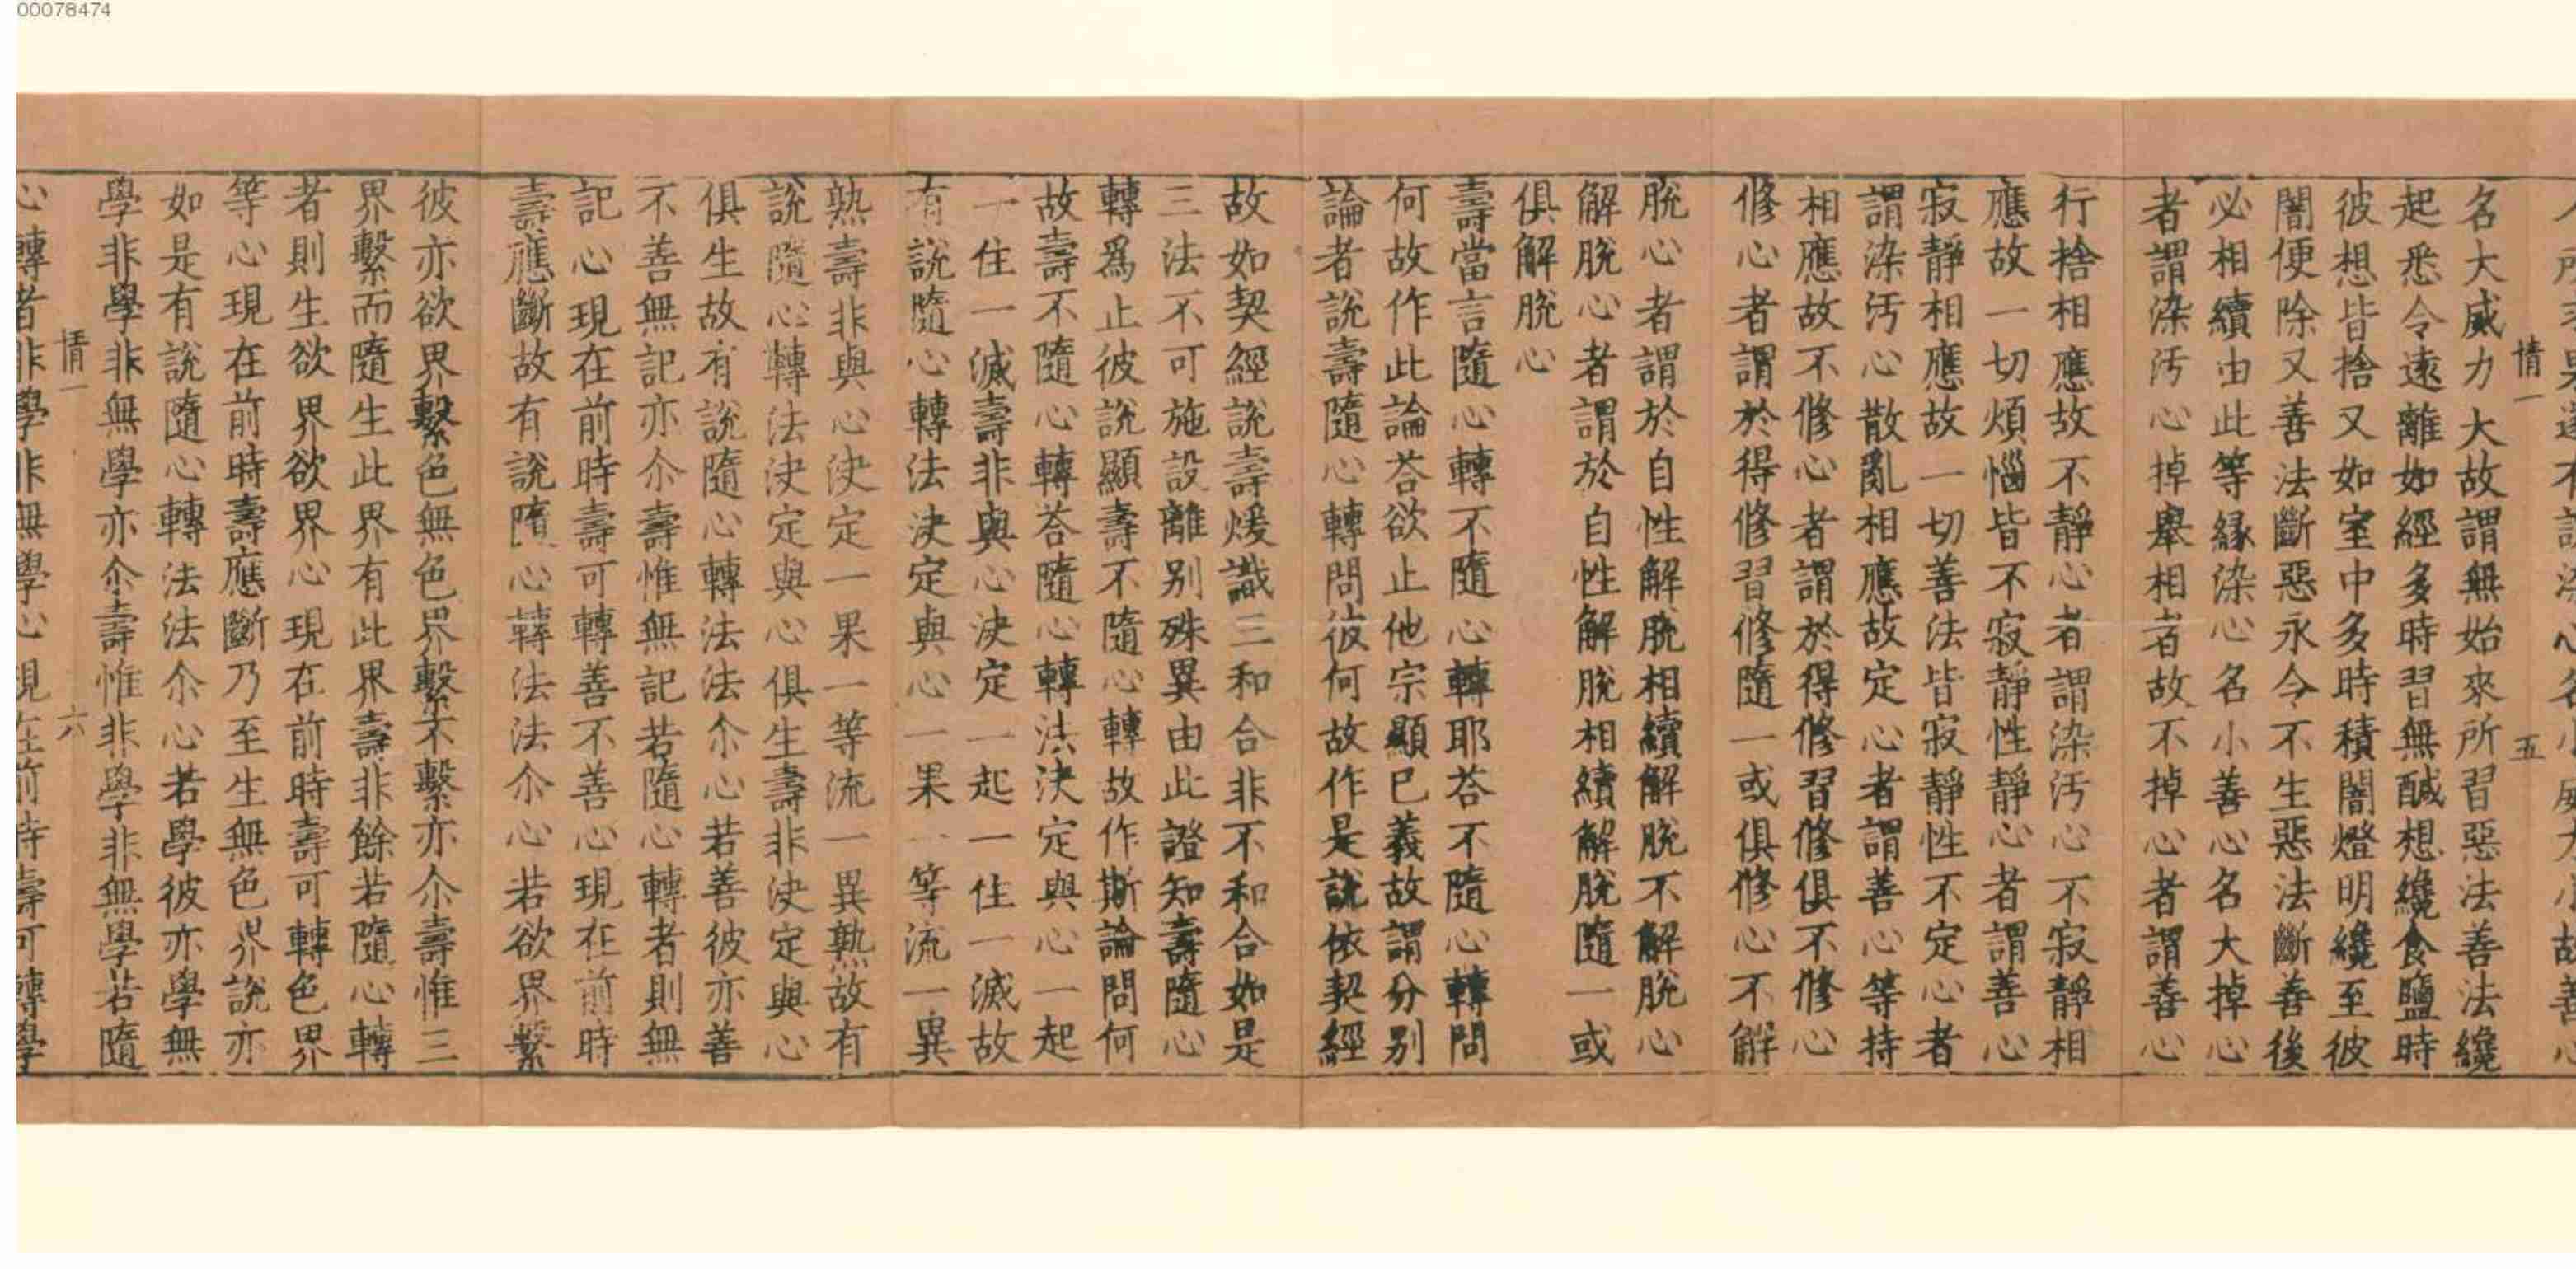 00078474
情一
五
名大威力大故謂無始來所習惡法善法纔
起悉令遠離如經多時習無醎想纔食鹽時
彼想皆捨又如室中多時積闇燈明纔至彼
闇便除又善法斷惡永令不生惡法斷善後
必相續由此等緣染心名小善心名大掉心
者謂染汚心掉舉相者故不掉心者謂善心
行捨相應故不靜心者謂染汚心不寂靜相
應故一切煩惱皆不寂靜性靜心者謂善心
寂靜相應故一切善法皆寂靜性不定心者
謂染汚心散亂相應故定心者謂善心等持
相應故不修心者謂於得修習修俱不修心
修心者謂於得修習修隨一或俱修心不解
脫心者謂於自性解脫相續解脫不解脫心
解脫心者謂於自性解脫相續解脫隨一或
俱解脫心
壽當言隨心轉不隨心轉耶荅不隨心轉問
何故作此論荅欲止他宗顯己義故謂分别
論者說壽隨心轉問彼何故作是說依契經
故如契經說壽煖識三和合非不和合如是
三法不可施設離别殊異由此證知壽隨心
轉爲止彼說顯壽不隨心轉故作斯論問何
故壽不隨心轉荅隨心轉法決定與心一起
一住一滅壽非與心決定一起一住一滅故
有說隨心轉法決定與心一果一等流一異
熟壽非與心決定一果一等流一異熟故有
說隨心轉法決定與心俱生壽非決定與心
俱生故有說隨心轉法法尒心若善彼亦善
不善無記亦尒壽惟無記若隨心轉者則無
記心現在前時壽可轉善不善心現在前時
壽應斷故有說隨心轉法法尒心若欲界繫
彼亦欲界繫色無色界繫不繫亦尒壽惟三
界繫而隨生此界有此界壽非餘若隨心轉
者則生欲界欲界心現在前時壽可轉色界
等心現在前時壽應斷乃至生無色界說亦
如是有說隨心轉法法尒心若學彼亦學無
學非學非無學亦尒壽惟非學非無學若隨
情一
六
心轉者非學非無學心現在前時壽可轉學